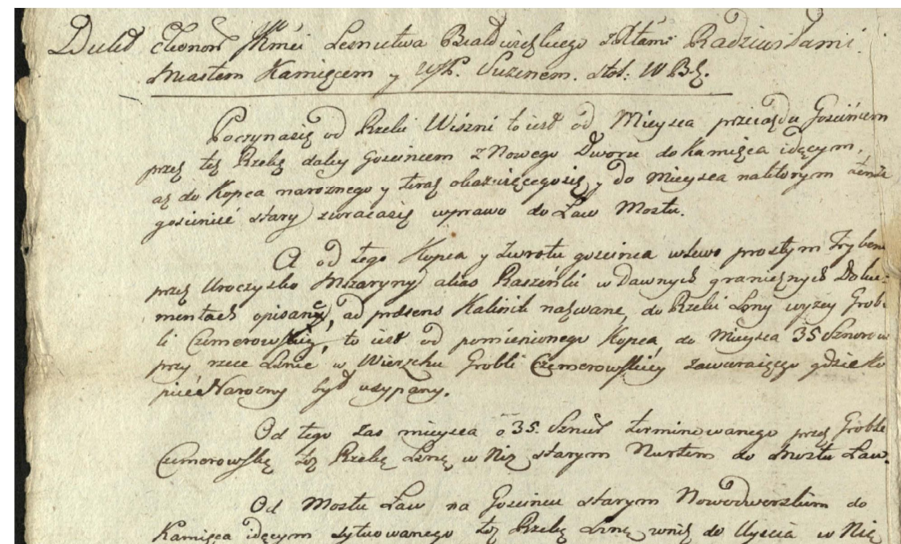 Dukt Elionow JKmci Lesnictwa Białowieskiego z Xtami Radziwiłami
Miastem Kamięcem y WJP. Suzinem. Stol: W Bḡ.
Poczynasię od Rzeki Wiszni to iest od Mieysca przeiazdu Gościńcem
przez tęż Rzekę daley Gościncem z Nowego Dworu do Kamięca idącym,
aż do Kopca naroznego y teraz okazuiącegosię, y do Mieysca naktorym tenże
gościniec stary zwracasię wprawo do Ław Mostu.
A od tego Kopca y zwrotu gościnca wlewo prostym Trybem
przez Uroczysko Mszaryny alias Praszeńki w dawnych granicznych Doku-
mentach opisany, ad präsens Kalinik nazwane, do Rzeki Lsny wyzey Grob-
li Czemerowskiey, to iest od pomienionego Kopca, do Mieysca 35 Sznorow
przy rzece Lsnie w Wierzchu Grobli Czemerowskiey zawaraiącego gdzie Ko
piec Narozny był usypany.
Od tego zas mieysca o 35. Sznur terminowanego przez Groblę
Czemerowską tąż Rzeką Lsną w Niz starym Nurtem do Mostu Ław.
Od Mostu Ław na Gościncu starym Nowodworskim do
Kamięca idącym sytuowanego tąż Rzeką Lsną wniz do Uyscia w Nię